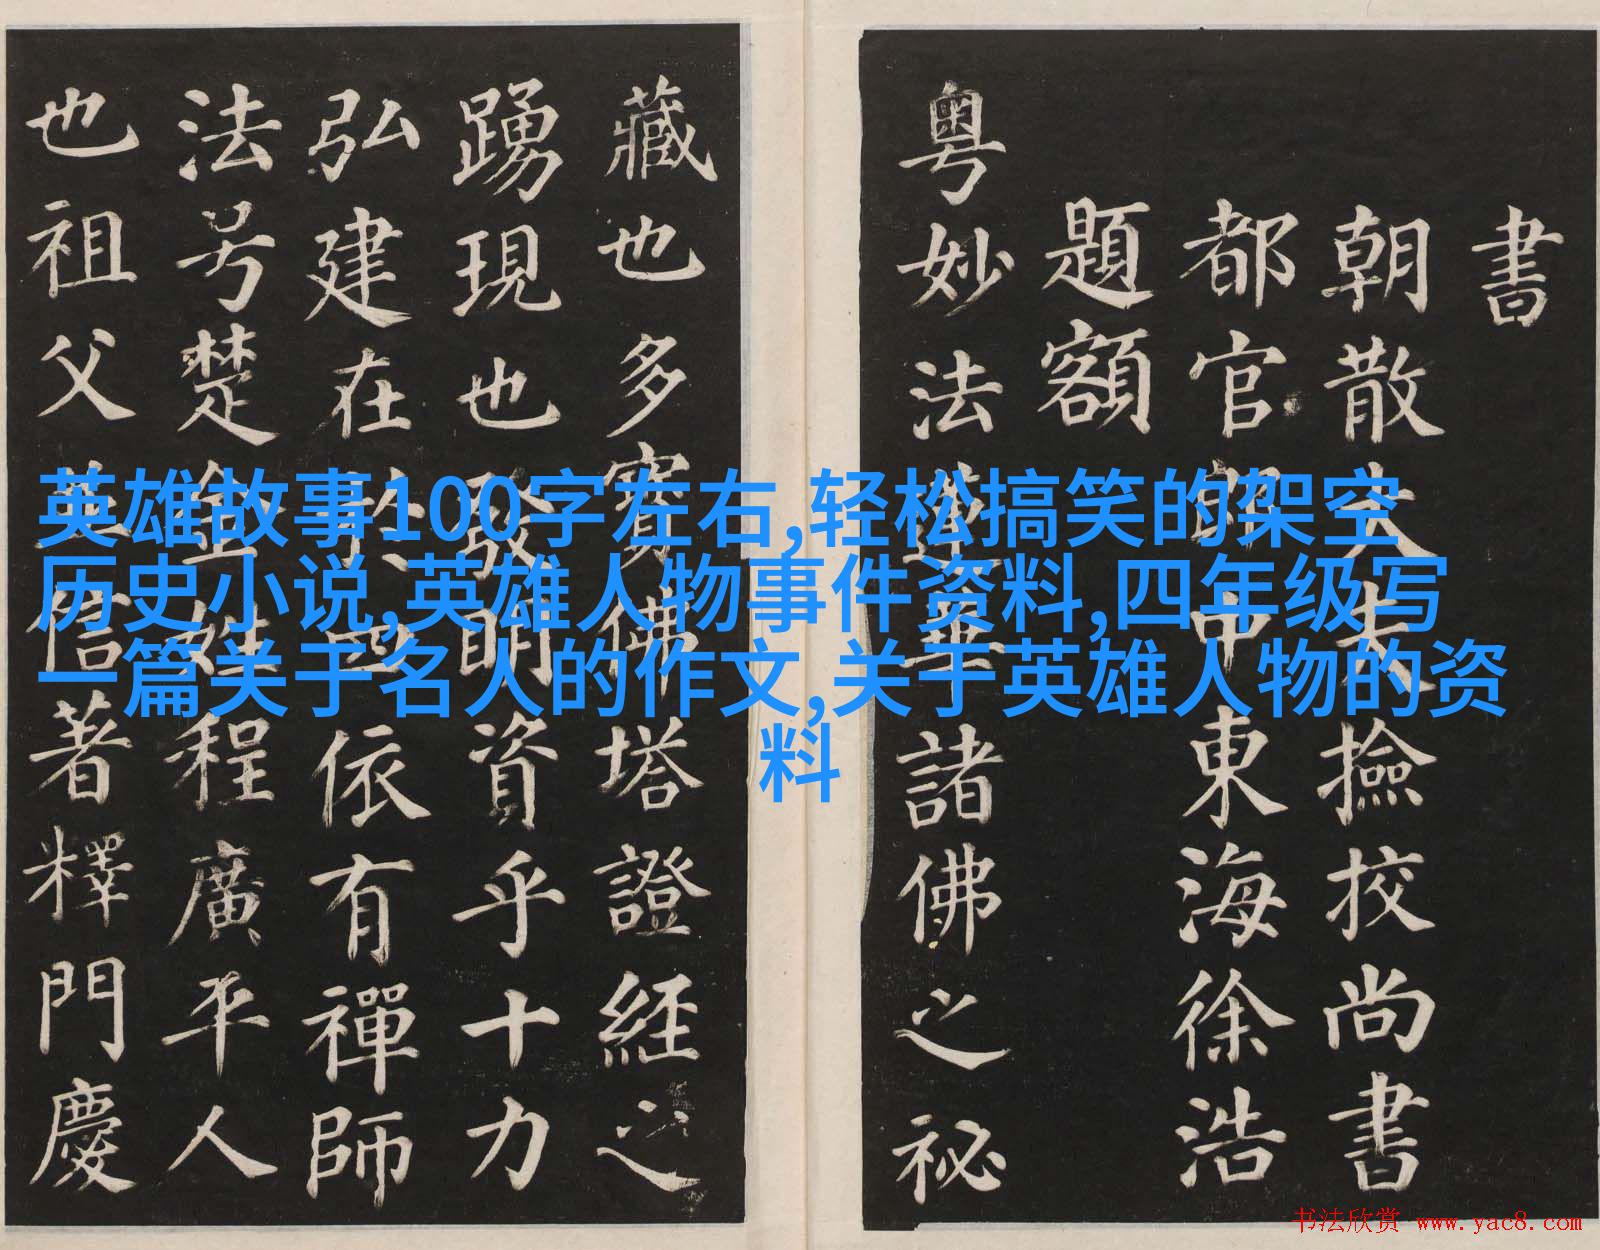 書
朝散大夫撿挍尚書
都官郎中東海徐浩
題額
粤妙法蓮華諸佛之祕
藏也多寶佛塔證經之
踴現也發明資乎十力
弘建在於四依有禪師
法号楚金姓程廣平人
也祖父並信著釋門慶
英雄故事100字左右,轻松搞笑的架空
历史小说,英雄人物事件资料,四年级写
一篇关于名人的作文,关于英雄人物的资
料
书法欣赏 www.yac8.com